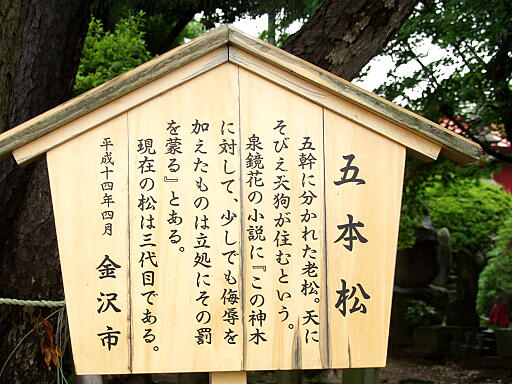 五本松
五幹に分かれた老松。天に
そびえ天狗が住むという。
泉鏡花の小説に『この神木
に対して、少しでも侮辱を
加えたものは立処にその罰
を蒙る』とある。
現在の松は三代目である。
平成十四年四月　金沢市